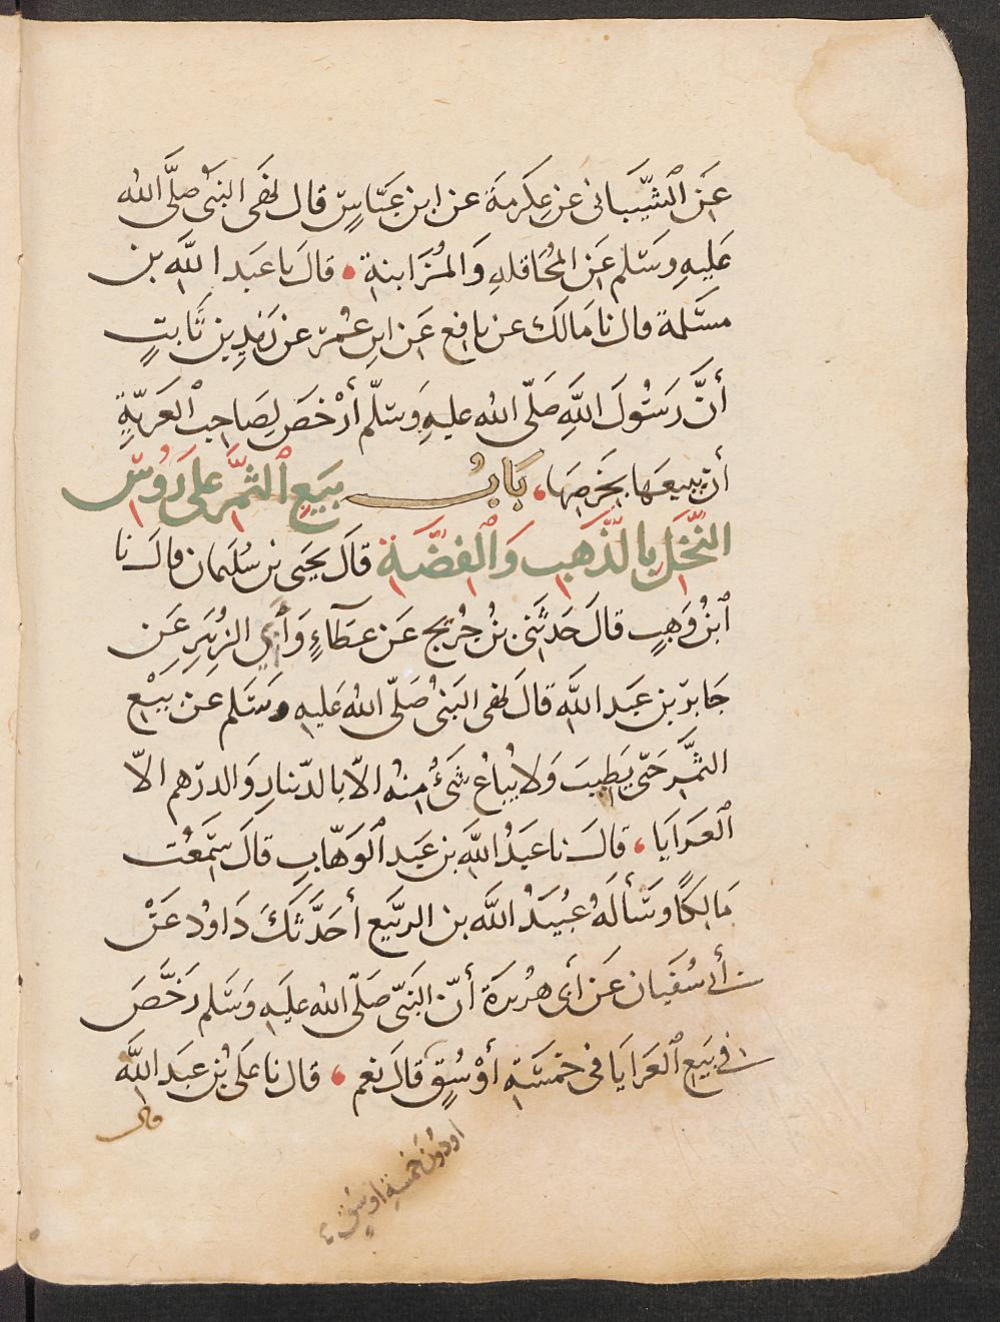 عَنِ ٱلشَّيْبَانى عَن عِكرمَةَ عن ابن عبَّاسٍ قال نهَى النبىُّ صلَّى الله
عَليهِ وسَلم عَن المحُاقلهِ وَالمُزَابنة • قالَ نا عَبد الله بن
مسَلمة قال نا مَالك عن نافع عَن ابنِ عُمرَ عن زَيد بن ثَابتٍ
أنَّ رَسُولَ اللهِ صَلّى الله عليهِ وَسَلّم أرْخصَ لِصَاحِب ٱلعَريّةِ
أن يبيعَها بخَرصِهَا، بَابُ بيَع ٱلثمَّر عَلى رَؤُسِ
النّخل بالذّهَب وَٱلفِضَّة قالَ يحَيى بن سُليمان قالَ نا
ٱبنُ وَهبٍ قالَ حَدثَنى بنُ جُريج عَن عَطآءٍ وَأبي الزُبَيرِ عَن
جَابر بن عَبد اللهِ قالَ نهى النبىُّ صَلّى اللهُ عَليهِ وسَلم عَن بيْع
الثمَّر حَتّى يَطِيبَ وَلا يُبَاعُ شَىءُ مِنهُ الاّ بالدّينارِ وَالدرهم الاّ
ٱلعَرَايَا ، قالَ نا عَبدُ اللهِ بن عَبد ٱلوَهّابِ قالَ سَمعْت
مَالِكًا وَسَألَهُ عُبيدُ الله بن الربَيع أحَدّثَكَ دَاودُ عَنْ
أبى سُفيَان عَن أبى هُريرَة أنّ النَبىّ صَلّى اللهُ عليَهِ وَسَلم رَخَّصَ
فى بَيع ٱلعَرَايَا فى خمَسَةِ أوْسُقٍ قالَ نعَم ، قال نا عَلى بن عبَد اللهِ
قال
اودُونَ خَمسةِ اوسُقٍ